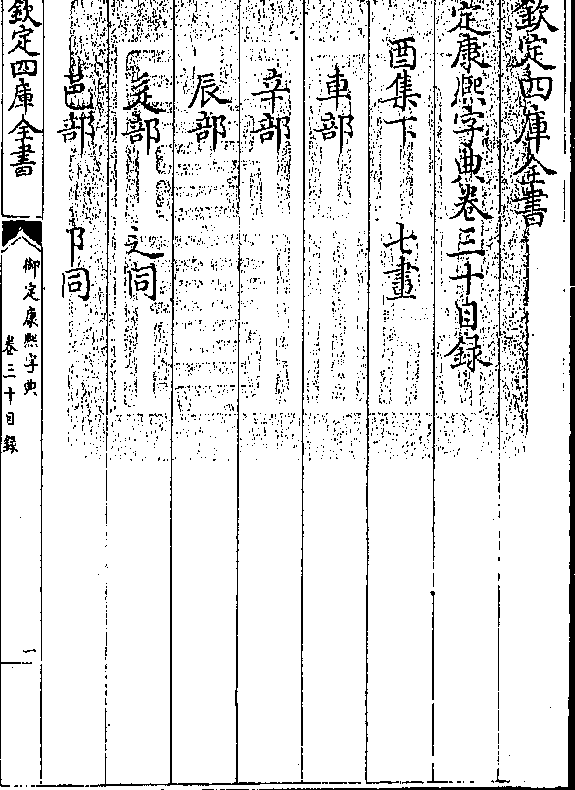 欽定四庫全書
定康熙字典卷三十目録
酉集下　七畫
車部
辛部
辰部
辵部　辶同
邑部　阝同
欽定四庫全書
御定康熙字典
卷三十目録
一